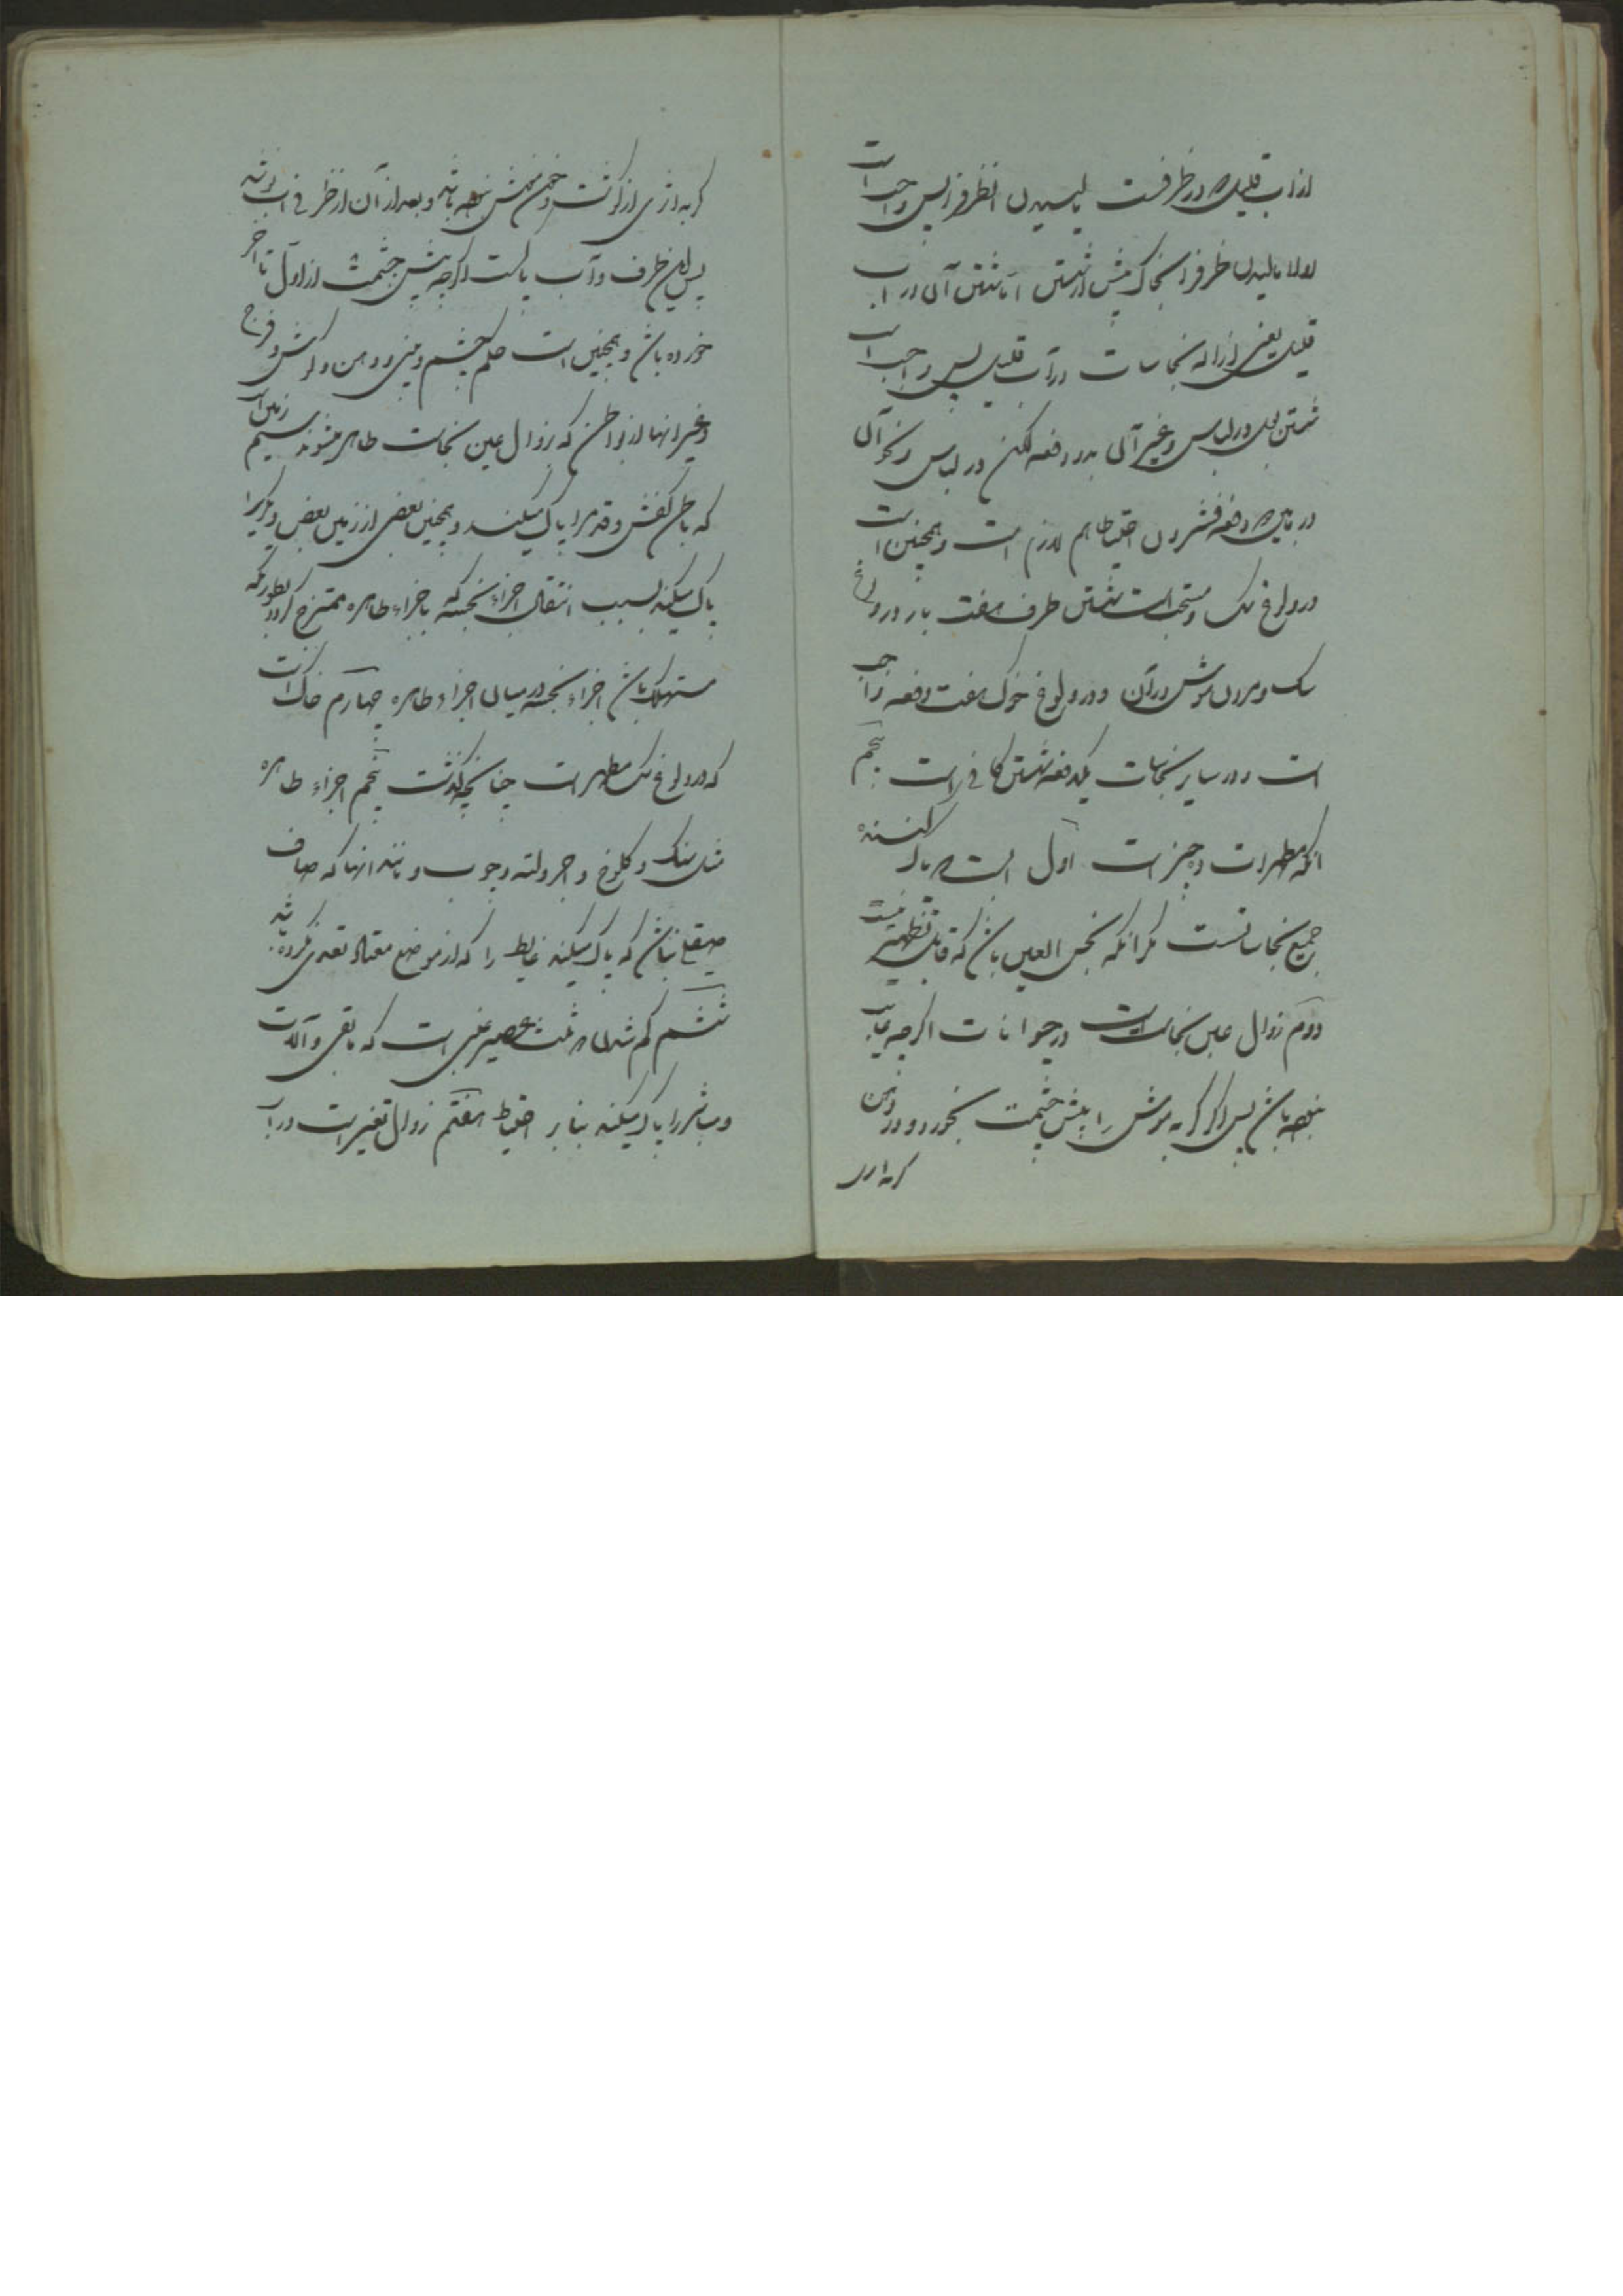 از آب قلیل که در ظرفست یا لیسیدن آنظرف را پس واجب است
اولا مالیدن ظرف را بخاک پیش از شستن اما شستن آن در آب
قلیل یعنی ازاله نجاسات در آب قلیل پس واجب است
شستن بول در لباس و غیر آن بدو دفعه لکن در لباس و نحو آن
در مابین دو دفعه فشردن احتیاطا هم لازم است و همچنین است
در ولوغ سک و مستحب است شستن ظرف هفت بار در ولوغ
سک و مردن موش در آن و در ولوغ خوک هفت دفعه واجب
است و در سایر نجاسات یکدفعه شستن کافی است پنجم
آنکه مطهرات ده چیز است اول آب است که پاک کننده
جمیع نجاساتست مکر آنکه نجس العین باشد که قابل تطهیر نیست
دوم زوال عین نجاست است در حیوانات اکرچه غایب
نبوده باشد پس اکر کربه موش را پیش چشمت بخورد و در دهن
کربه اثری
کربه اثری از کوشت و خون موش نبوده باشد و بعد از آن از ظرفی آب نوشد
پس این ظرف و آب پاکست اکرچه پیش چشمت از اول تا آخر
خورده باشد و همچنین است حکم چشم و بینی و دهن و کوش و فرج
و غیر اینها از بواطن که بزوال عین نجاست طاهر میشوند سیم زمین است
که باطن کفش و قدم را پاک میکند و همچنین بعضی از زمین بعض دیکر را
پاک میکند بسبب انتقال اجزاء نجسه که باجزاء طاهره ممتزج کردد بطوریکه
مستهلک باشد اجزاء نجسه در میان اجزاء طاهره چهارم خاک است
که در ولوغ سک مطهر است چنانچه کذشت پنجم اجزاء طاهره
مثل سنک و کلوخ و خرقه و لته و چوب و مانند اینها که صاف
صیقلی نباشد که پاک میکند غایط را که از موضع معتاد تعدی نکرده باشد
ششم کم شدن دو ثلث عصیر عنبی است که مابقی و آلات
و مباشر را پاک میکند بنابر احتیاط هفتم زوال تغیر است در آب